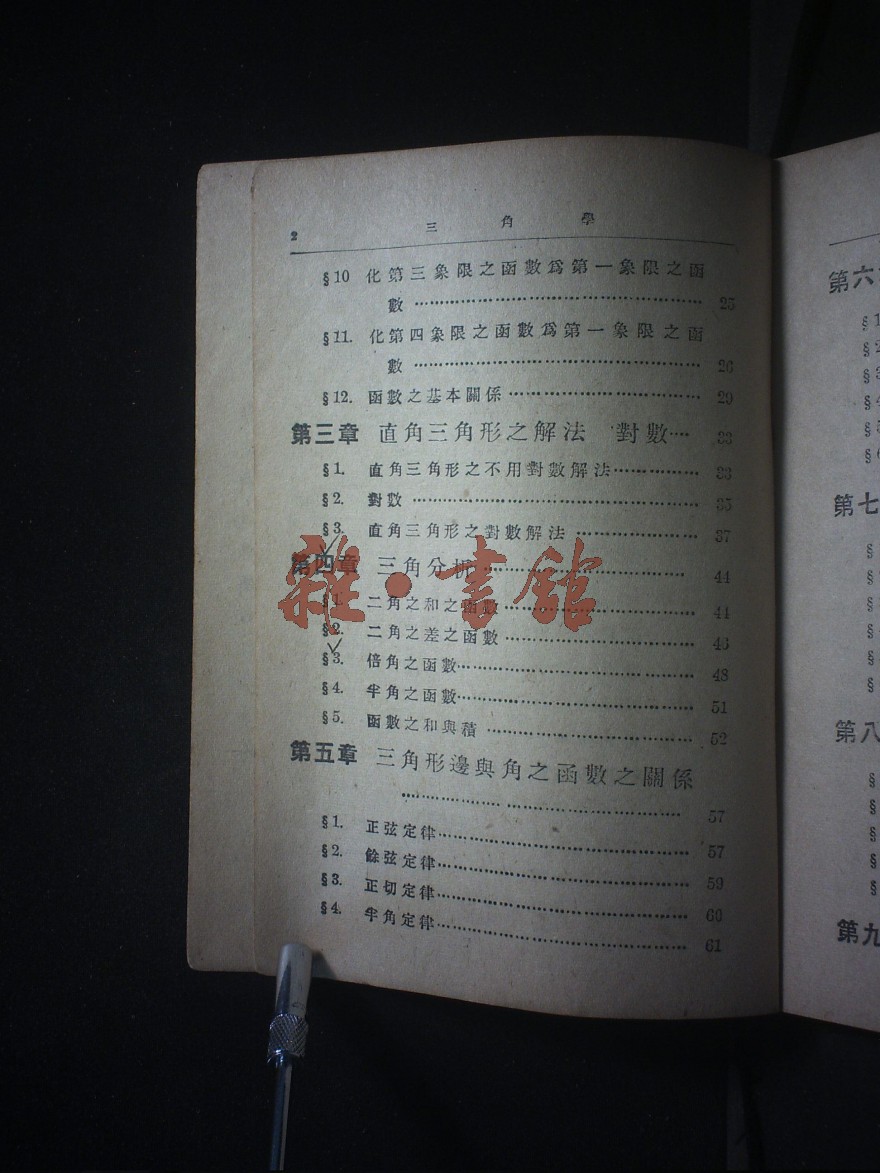 2 三角學
§10 化第三象限之函數爲第一象限之函
數 25
§11. 化第四象限之函數爲第一象限之函
數 26
§12. 函數之基本關係 29
第三章 直角三角形之解法 對數 33
§1. 直角三角形之不用對數解法 33
§2. 對數 35
§3. 直角三角形之對數解法 37
第四章 三角分析 44
§1. 二角之和之函數 44
§2. 二角之差之函數 46
§3. 倍角之函數 48
§4. 半角之函數 51
§5. 函數之和與積 52
第五章 三角形邊與角之函數之關係
57
§1. 正弦定律 57
§2. 餘弦定律 59
§3. 正切定律 60
§4. 半角定律 61
雜·書館
第六
§1
§2
§3
§4
§5
§6
第七
§
§
§
§
§
§
第八
§
§
§
§
§
第九